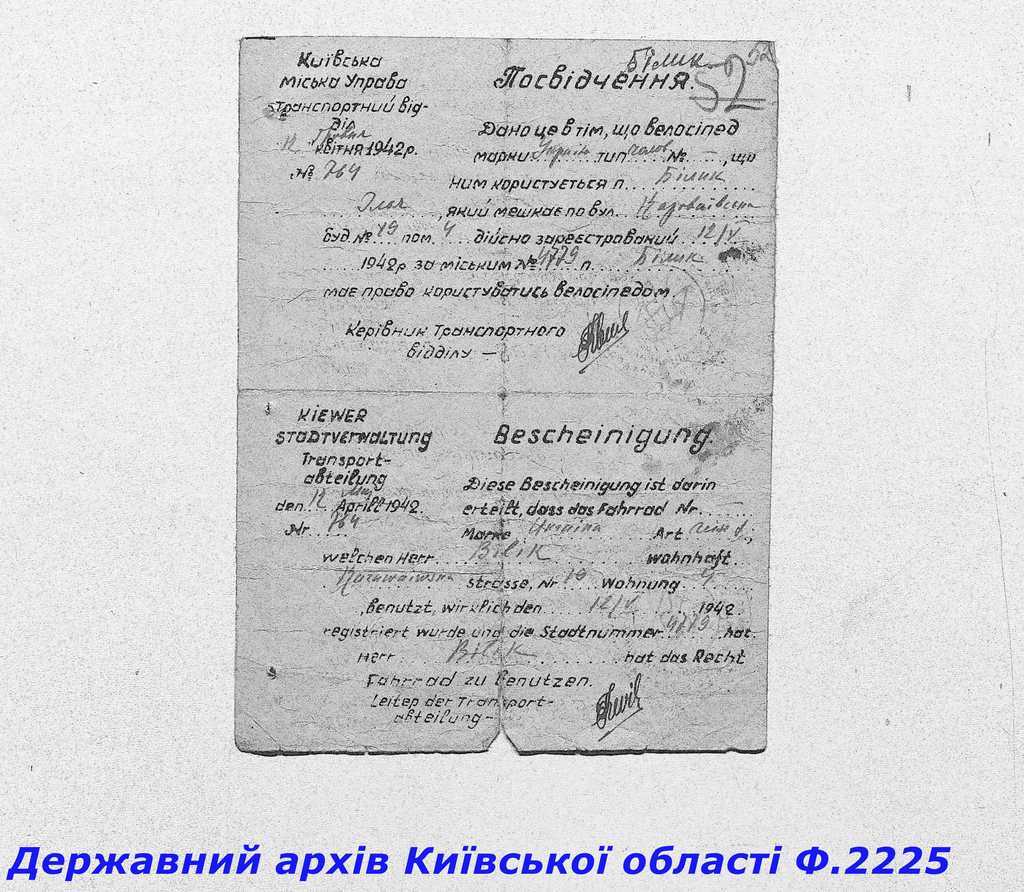 Білик
52
52
Київська
міська Управа
транспортний від-
діл
Посвідчення.
12 Травня
квітня 1942р.
№ 764
Дано це в тім, що велосипед
марки Україна тип чолов. №, що
ним користується п. Білик
, який мешкає по вул.
буд. № 19 пом. 4 дійсно зареєстрований 12/V
1942р за міським № 4779 п. Білик
має право користуватись велосіпедом.
Керівник Транспортного
відділу —
KIEWER
STADTVERWALTUNG
Transport-
abteilung
Bescheinigung.
den 12 Mai
Aprill 1942.
Nr. 764
Diese Bescheinigung ist darin
erteilt, dass das Fahrrad Nr.
Marke Ukraina Art
welchen Herr Bilik wohnhaft
strasse, Nr 19 wohnung 4
, benutzt, wirklich den 12/V 1942
registriert wurde und die Stadtnummer 4779 hat.
Herr Bilik hat das Recht
Fahrrad zu benutzen.
Leiter der Transport-
abteilung —
Державний архів Київської області Ф.2225